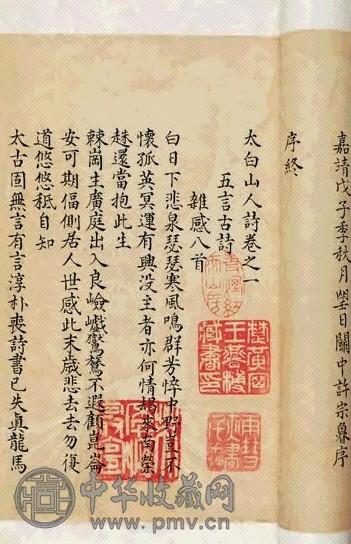 嘉靖戊子季秋月望日關中許宗魯序
序終
太白山人詩卷之一
五言古詩
雜感八首
白日下悲泉瑟瑟寒風鳴群芳悴中野豈不
懷孤英冥運有興没主者亦何情朅來南榮
趎還當抱此生
棘崗生廣庭出入良嶮巇鸞鷟不遐顧崑崙
安可期偪側居人世感此末歲悲去去勿復
道悠悠秪自知
太古固無言有言淳朴喪詩書已失真龍馬
中华收藏网
www.pmv.cn